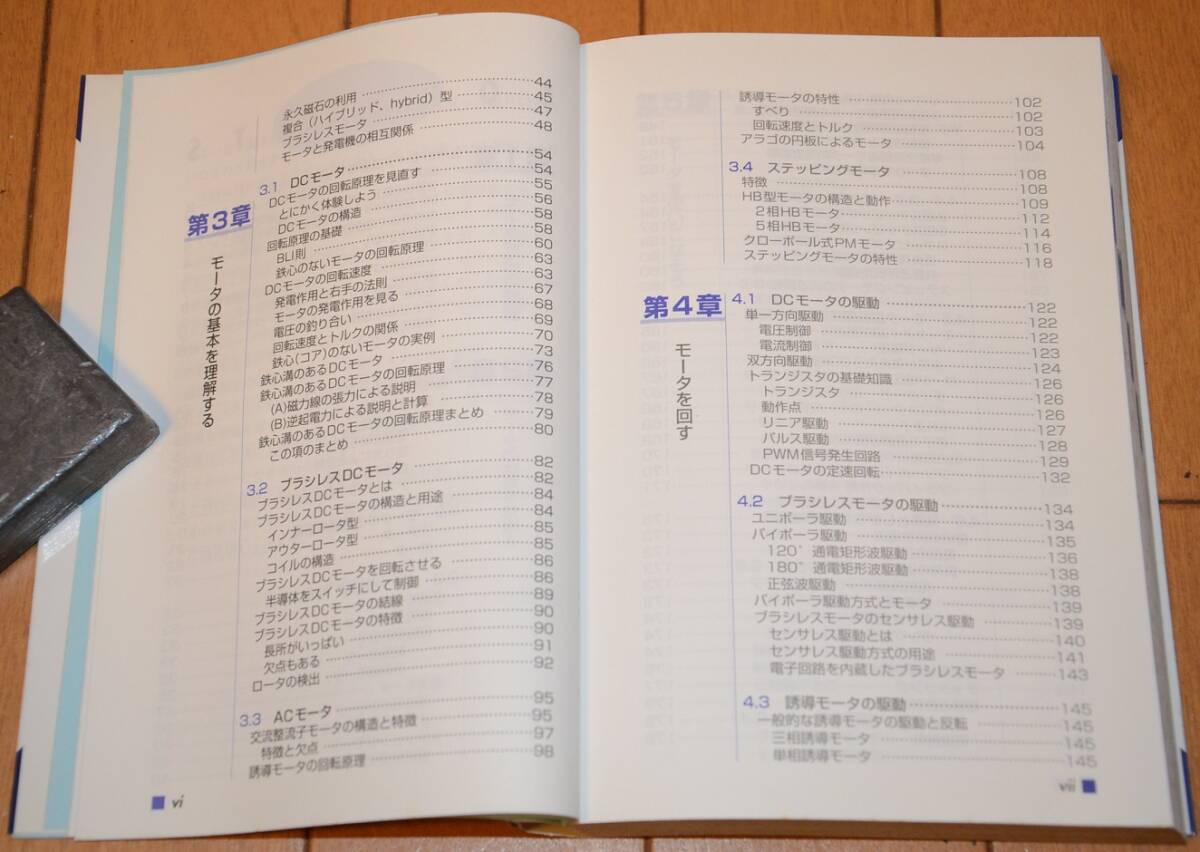 永久磁石の利用 44
複合（ハイブリッド、hybrid）型 45
ブラシレスモータ 47
モータと発電機の相互関係 48
第3章
モータの基本を理解する
3.1 DCモータ 54
DCモータの回転原理を見直す 54
とにかく体験しよう 55
DCモータの構造 56
回転原理の基礎 58
BLI則 58
鉄心のないモータの回転原理 60
DCモータの回転速度 63
発電作用と右手の法則 63
モータの発電作用を見る 67
電圧の釣り合い 68
回転速度とトルクの関係 69
鉄心（コア）のないモータの実例 70
鉄心溝のあるDCモータ 73
鉄心溝のあるDCモータの回転原理 76
(A)磁力線の張力による説明 77
(B)逆起電力による説明と計算 78
鉄心溝のあるDCモータの回転原理まとめ 79
この項のまとめ 80
3.2 ブラシレスDCモータ 82
ブラシレスDCモータとは 82
ブラシレスDCモータの構造と用途 84
インナーロータ型 84
アウターロータ型 85
コイルの構造 85
ブラシレスDCモータを回転させる 86
半導体をスイッチにして制御 86
ブラシレスDCモータの結線 89
ブラシレスDCモータの特徴 90
長所がいっぱい 90
欠点もある 91
ロータの検出 92
3.3 ACモータ 95
交流整流子モータの構造と特徴 95
特徴と欠点 97
誘導モータの回転原理 98
vi
誘導モータの特性 102
すべり 102
回転速度とトルク 103
アラゴの円板によるモータ 104
3.4 ステッピングモータ 108
特徴 108
HB型モータの構造と動作 109
2相HBモータ 112
5相HBモータ 114
クローポール式PMモータ 116
ステッピングモータの特性 118
第4章
モータを回す
4.1 DCモータの駆動 122
単一方向駆動 122
電圧制御 122
電流制御 123
双方向駆動 124
トランジスタの基礎知識 126
トランジスタ 126
動作点 126
リニア駆動 127
パルス駆動 128
PWM信号発生回路 129
DCモータの定速回転 132
4.2 ブラシレスモータの駆動 134
ユニポーラ駆動 134
バイポーラ駆動 135
120°通電矩形波駆動 136
180°通電矩形波駆動 138
正弦波駆動 138
バイポーラ駆動方式とモータ 139
ブラシレスモータのセンサレス駆動 139
センサレス駆動とは 140
センサレス駆動方式の用途 141
電子回路を内蔵したブラシレスモータ 143
4.3 誘導モータの駆動 145
一般的な誘導モータの駆動と反転 145
三相誘導モータ 145
単相誘導モータ 145
vii